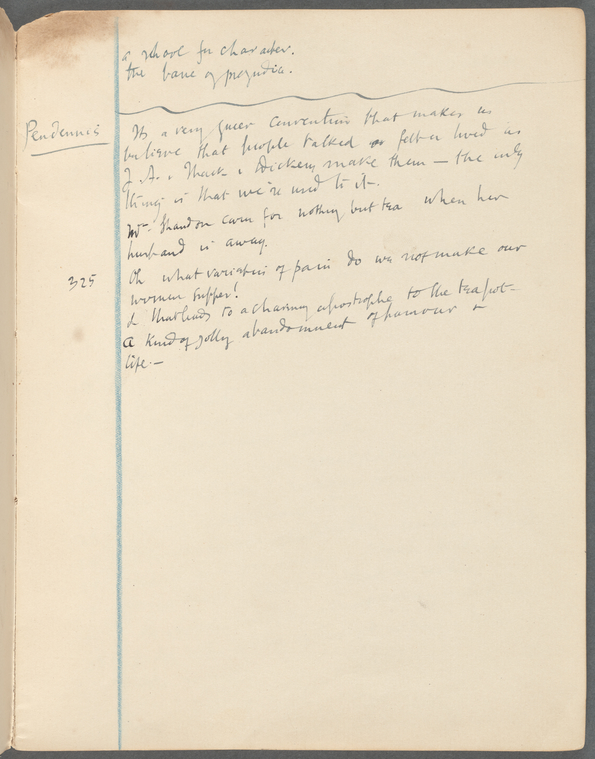 a school for character.
the bane of prejudice.
Pendennis
Its a very queer convention that makes us
believe that people talked or felt or lived as
J.A. & Thack & Dickens make them — the only
thing is that we're used to it.
Mrs. Shandon cares for nothing but tea when her
husband is away.
325
Oh what varieties of pain do we not make our
women suffer!
& that leads to a charming apostrophe to the tea pot—
a kind of jolly abandonment of humour &
life.—